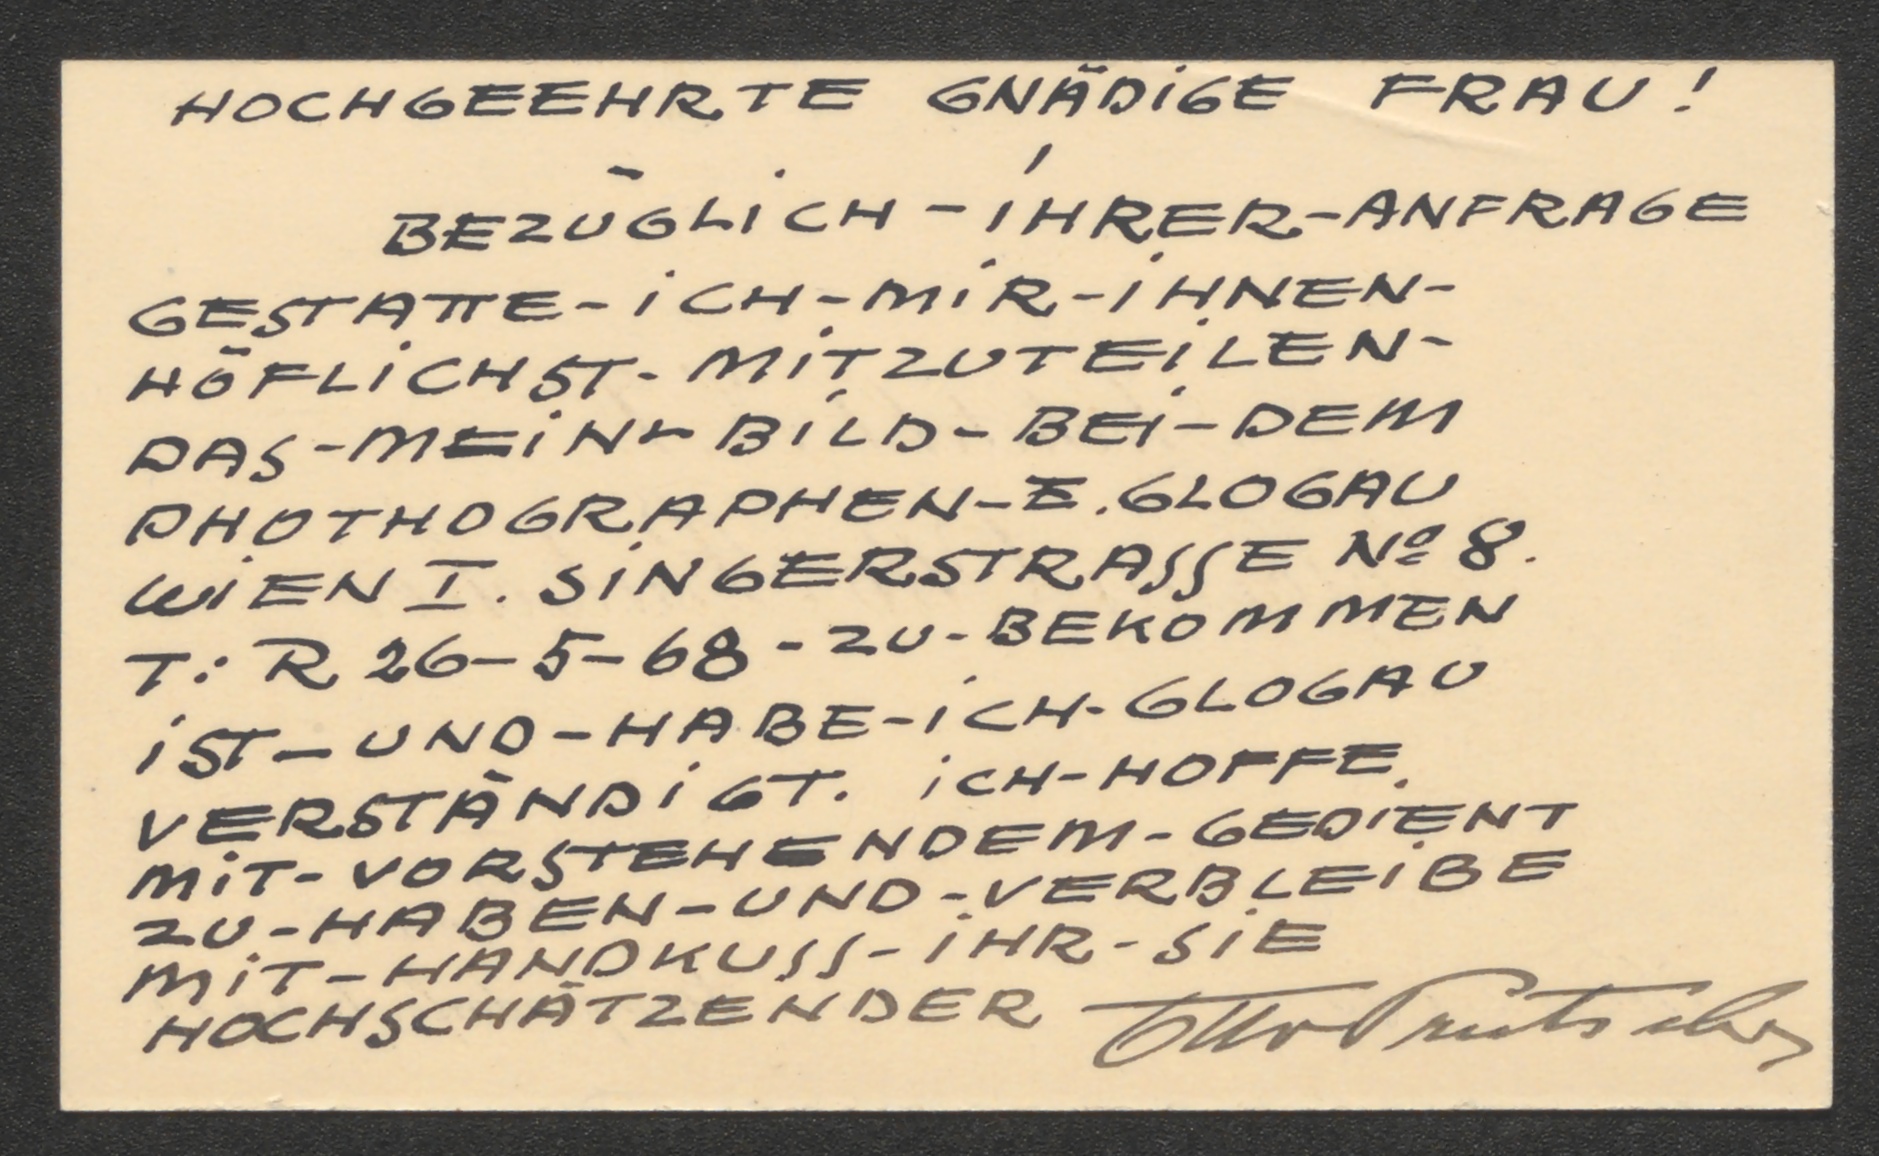 HOCHGEEHRTE GNÄDIGE FRAU!
BEZÜGLICH - IHRER - ANFRAGE
GESTATTE - ICH - MIR - IHNEN -
HÖFLICHST - MITZUTEILEN -
DAS - MEIN - BILD - BEI - DEM
PHOTHOGRAPHEN - E. GLOGAU
WIEN I. SINGERSTRASSE No 8.
T: R 26-5-68 - ZU - BEKOMMEN
IST - UND - HABE - ICH - GLOGAU
VERSTÄNDIGT. ICH - HOFFE,
MIT - VORSTEHENDEM - GEDIENT
ZU - HABEN - UND - VERBLEIBE
MIT - HANDKUSS - IHR - SIE
HOCHSCHÄTZENDER Otto Prutscher